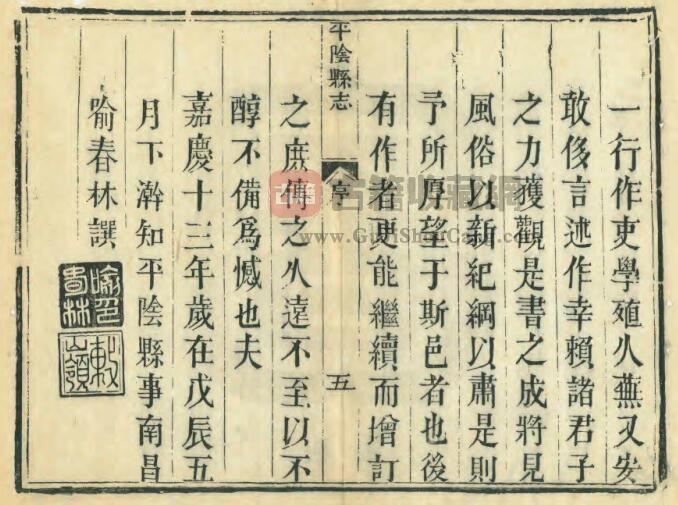 一行作吏學殖久蕪又安
敢侈言述作幸賴諸君子
之力獲觀是書之成將見
風俗以新紀綱以肅是則
予所厚望于斯邑者也後
有作者更能繼續而增訂
平陰縣志
序
五
之庶傳之久遠不至以不
醇不備爲憾也夫
嘉慶十三年歲在戊辰五
月下澣知平陰縣事南昌
喻春林譔
喻春林印
古籍收藏網